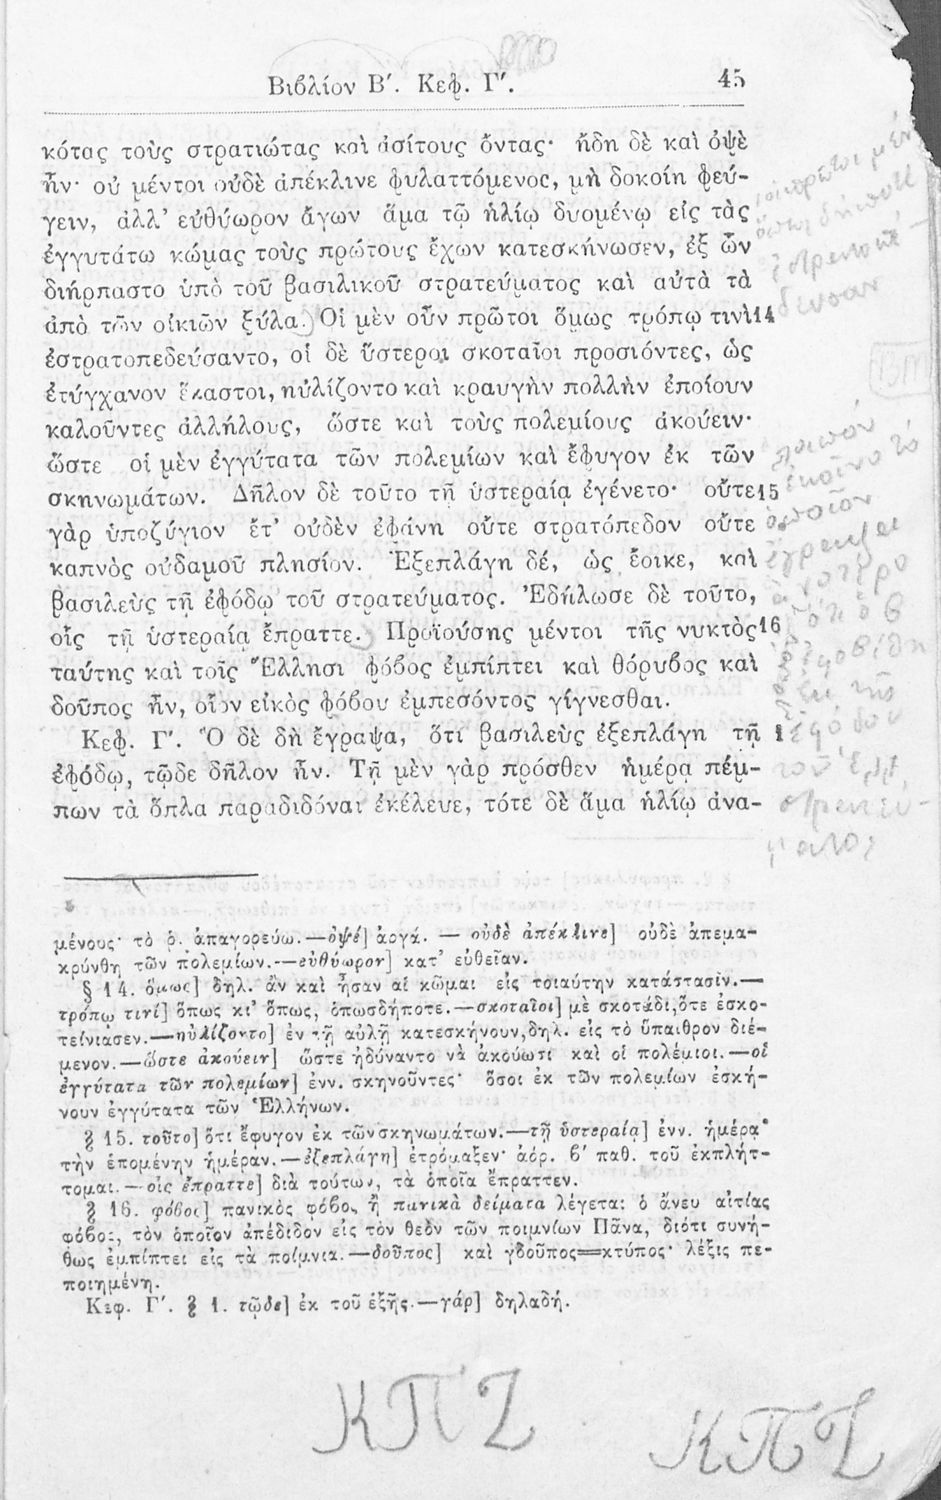 Βιβλίον Β′. Κεφ. Γ′.
45
κότας τοὺς στρατιώτας καὶ ἀσίτους ὄντας· ἤδη δὲ καὶ ὀψὲ
ἦν· οὐ μέντοι οὐδὲ ἀπέκλινε φυλαττόμενος, μὴ δοκοίη φεύ-
γειν, ἀλλ' εὐθύωρον ἄγων ἅμα τῷ ἡλίῳ δυομένῳ εἰς τὰς
ἐγγυτάτω κώμας τοὺς πρώτους ἔχων κατεσκήνωσεν, ἐξ ὧν
διήρπαστο ὑπὸ τοῦ βασιλικοῦ στρατεύματος καὶ αὐτὰ τὰ
ἀπὸ τῶν οἰκιῶν ξύλα. Οἱ μὲν οὖν πρῶτοι ὅμως τρόπῳ τινὶ 14
ἐστρατοπεδεύσαντο, οἱ δὲ ὕστεροι σκοταῖοι προσιόντες, ὡς
ἐτύγχανον ἕκαστοι, ηὐλίζοντο καὶ κραυγὴν πολλὴν ἐποίουν
καλοῦντες ἀλλήλους, ὥστε καὶ τοὺς πολεμίους ἀκούειν·
ὥστε οἱ μὲν ἐγγύτατα τῶν πολεμίων καὶ ἔφυγον ἐκ τῶν
σκηνωμάτων. Δῆλον δὲ τοῦτο τῇ ὑστεραίᾳ ἐγένετο· οὔτε 15
γὰρ ὑποζύγιον ἔτ' οὐδὲν ἐφάνη οὔτε στρατόπεδον οὔτε
καπνὸς οὐδαμοῦ πλησίον. Ἐξεπλάγη δέ, ὡς ἔοικε, καὶ
βασιλεὺς τῇ ἐφόδῳ τοῦ στρατεύματος. Ἐδήλωσε δὲ τοῦτο,
οἷς τῇ ὑστεραίᾳ ἔπραττε. Προϊούσης μέντοι τῆς νυκτὸς 16
ταύτης καὶ τοῖς Ἕλλησι φόβος ἐμπίπτει καὶ θόρυβος καὶ
δοῦπος ἦν, οἷον εἰκὸς φόβου ἐμπεσόντος γίγνεσθαι.
Κεφ. Γ′. Ὃ δὲ δὴ ἔγραψα, ὅτι βασιλεὺς ἐξεπλάγη τῇ 1
ἐφόδῳ, τῷδε δῆλον ἦν. Τῇ μὲν γὰρ πρόσθεν ἡμέρᾳ πέμ-
πων τὰ ὅπλα παραδιδόναι ἐκέλευε, τότε δὲ ἅμα ἡλίῳ ἀνα-
οἱ πρῶτοι μὲν
ὅπως δήποτε
ἐστρατοπέ-
δευσαν
λοιπὸν
ἐκεῖνο τὸ
ὁποῖον
ἔγραψα
ἐφοβήθη
τῆς
ἐφόδου
τοῦ
στρατεύ-
ματος
μένους· τὸ ῥ. ἀπαγορεύω.—ὀψέ] ἀργά. — οὐδὲ ἀπέκλινε] οὐδὲ ἀπεμα-
κρύνθη τῶν πολεμίων.—εὐθύωρον] κατ' εὐθεῖαν.
§ 14. ὅμως] δηλ. ἂν καὶ ἦσαν αἱ κῶμαι εἰς τοιαύτην κατάστασιν.—
τρόπῳ τινί] ὅπως κι' ὅπως, ὁπωσδήποτε.—σκοταῖοι] μὲ σκοτάδι, ὅτε ἐσκο-
τείνιασεν.—ηὐλίζοντο] ἐν τῇ αὐλῇ κατεσκήνουν, δηλ. εἰς τὸ ὕπαιθρον διέ-
μενον.—ὥστε ἀκούειν] ὥστε ἠδύναντο νὰ ἀκούωσι καὶ οἱ πολέμιοι.—οἱ
ἐγγύτατα τῶν πολεμίων] ἐνν. σκηνοῦντες· ὅσοι ἐκ τῶν πολεμίων ἐσκή-
νουν ἐγγύτατα τῶν Ἑλλήνων.
§ 15. τοῦτο] ὅτι ἔφυγον ἐκ τῶν σκηνωμάτων.—τῇ ὑστεραίᾳ] ἐνν. ἡμέρᾳ·
τὴν ἑπομένην ἡμέραν.—ἐξεπλάγη] ἐτρόμαξεν· ἀόρ. β′ παθ. τοῦ ἐκπλήτ-
τομαι.—οἷς ἔπραττε] διὰ τούτων, τὰ ὁποῖα ἔπραττεν.
§ 16. φόβος] πανικὸς φόβος ἢ πανικὰ δείματα λέγεται ὁ ἄνευ αἰτίας
φόβος, τὸν ὁποῖον ἀπέδιδον εἰς τὸν θεὸν τῶν ποιμνίων Πᾶνα, διότι συνή-
θως ἐμπίπτει εἰς τὰ ποίμνια.—δοῦπος] καὶ γδοῦπος=κτύπος· λέξις πε-
ποιημένη.
Κεφ. Γ′. § 1. τῷδε] ἐκ τοῦ ἑξῆς.—γάρ] δηλαδή.
ΚΠΖ
ΚΠΖ